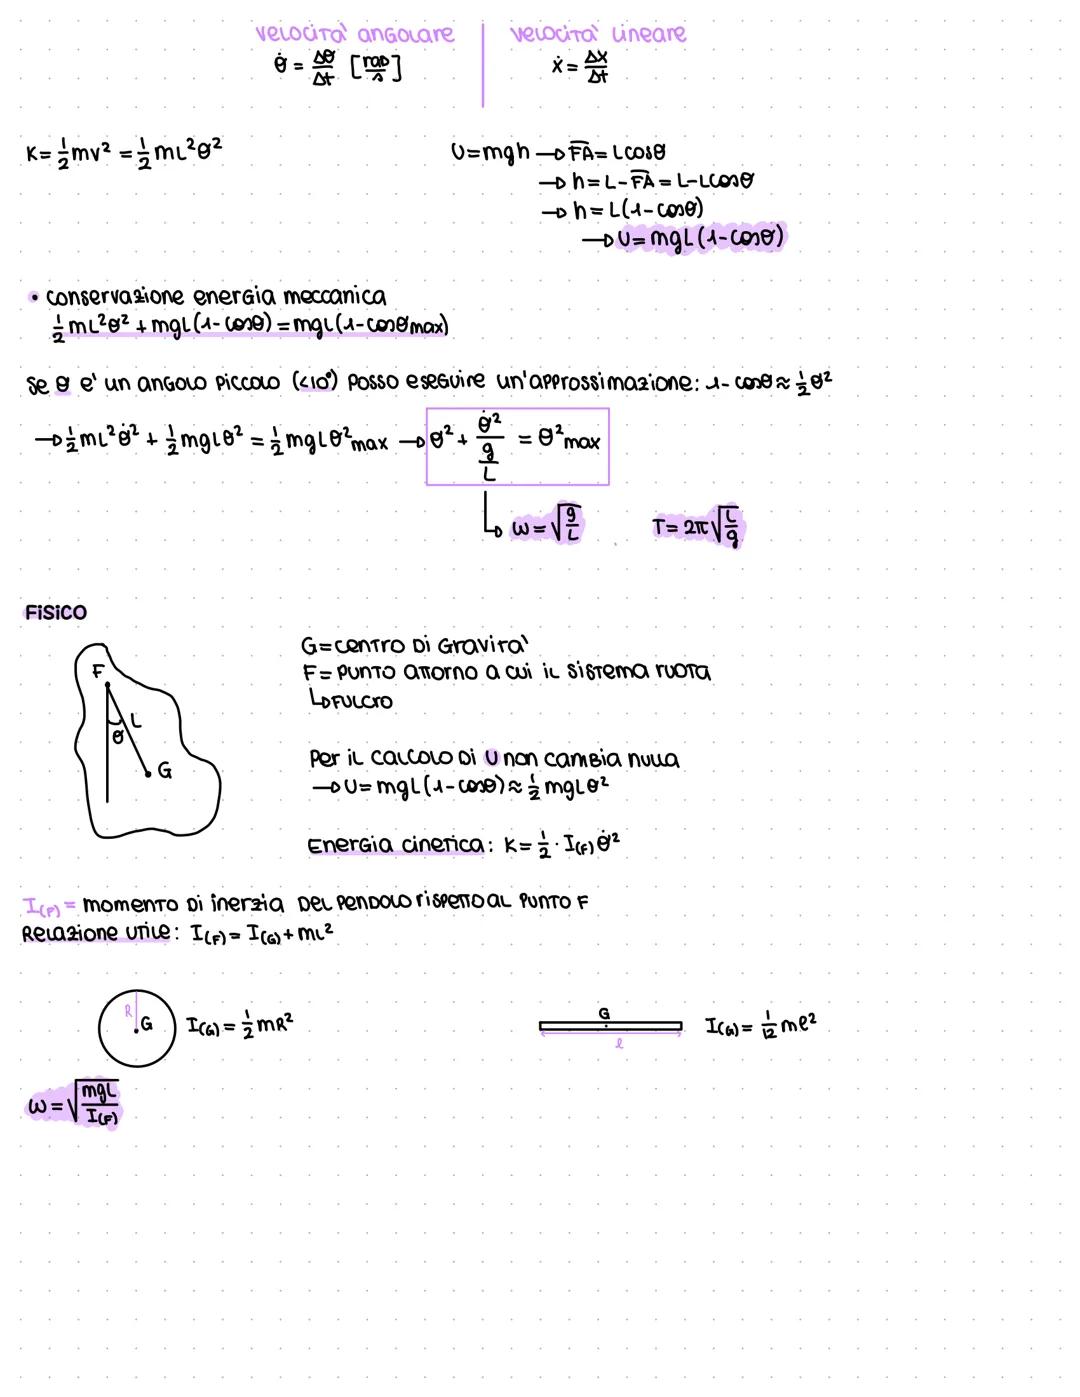 velocità angolare | velocità lineare
θ̇ = Δθ/Δt [rad/s]
ẋ = Δx/Δt
K = 1/2 mv² = 1/2 mL²θ̇²
U = mgh → F̅A̅ = Lcosθ
→ h = L - F̅A̅ = L - Lcosθ
→ h = L(1-cosθ)
→ U = mgL(1-cosθ)
• conservazione energia meccanica
1/2 mL²θ̇² + mgL(1-cosθ) = mgL(1-cosθmax)
se θ e' un angolo piccolo (<10°) posso eseguire un'approssimazione: 1-cosθ ≈ 1/2 θ²
→ 1/2 mL²θ̇² + 1/2 mgLθ² = 1/2 mgLθ²max → θ² + θ̇²/(g/L) = θ²max
↳ ω = √(g/L) T = 2π√(L/g)
FISICO
F
L
θ
G
G = centro di gravita'
F = punto attorno a cui il sistema ruota
↳ fulcro
Per il calcolo di U non cambia nulla
→ U = mgL(1-cosθ) ≈ 1/2 mgLθ²
Energia cinetica: K = 1/2 · I(F) θ̇²
I(F) = momento di inerzia del pendolo rispetto al punto F
Relazione utile: I(F) = I(G) + mL²
R
G
I(G) = 1/2 mR²
G
ℓ
I(G) = 1/12 mℓ²
ω = √(mgL/I(F))